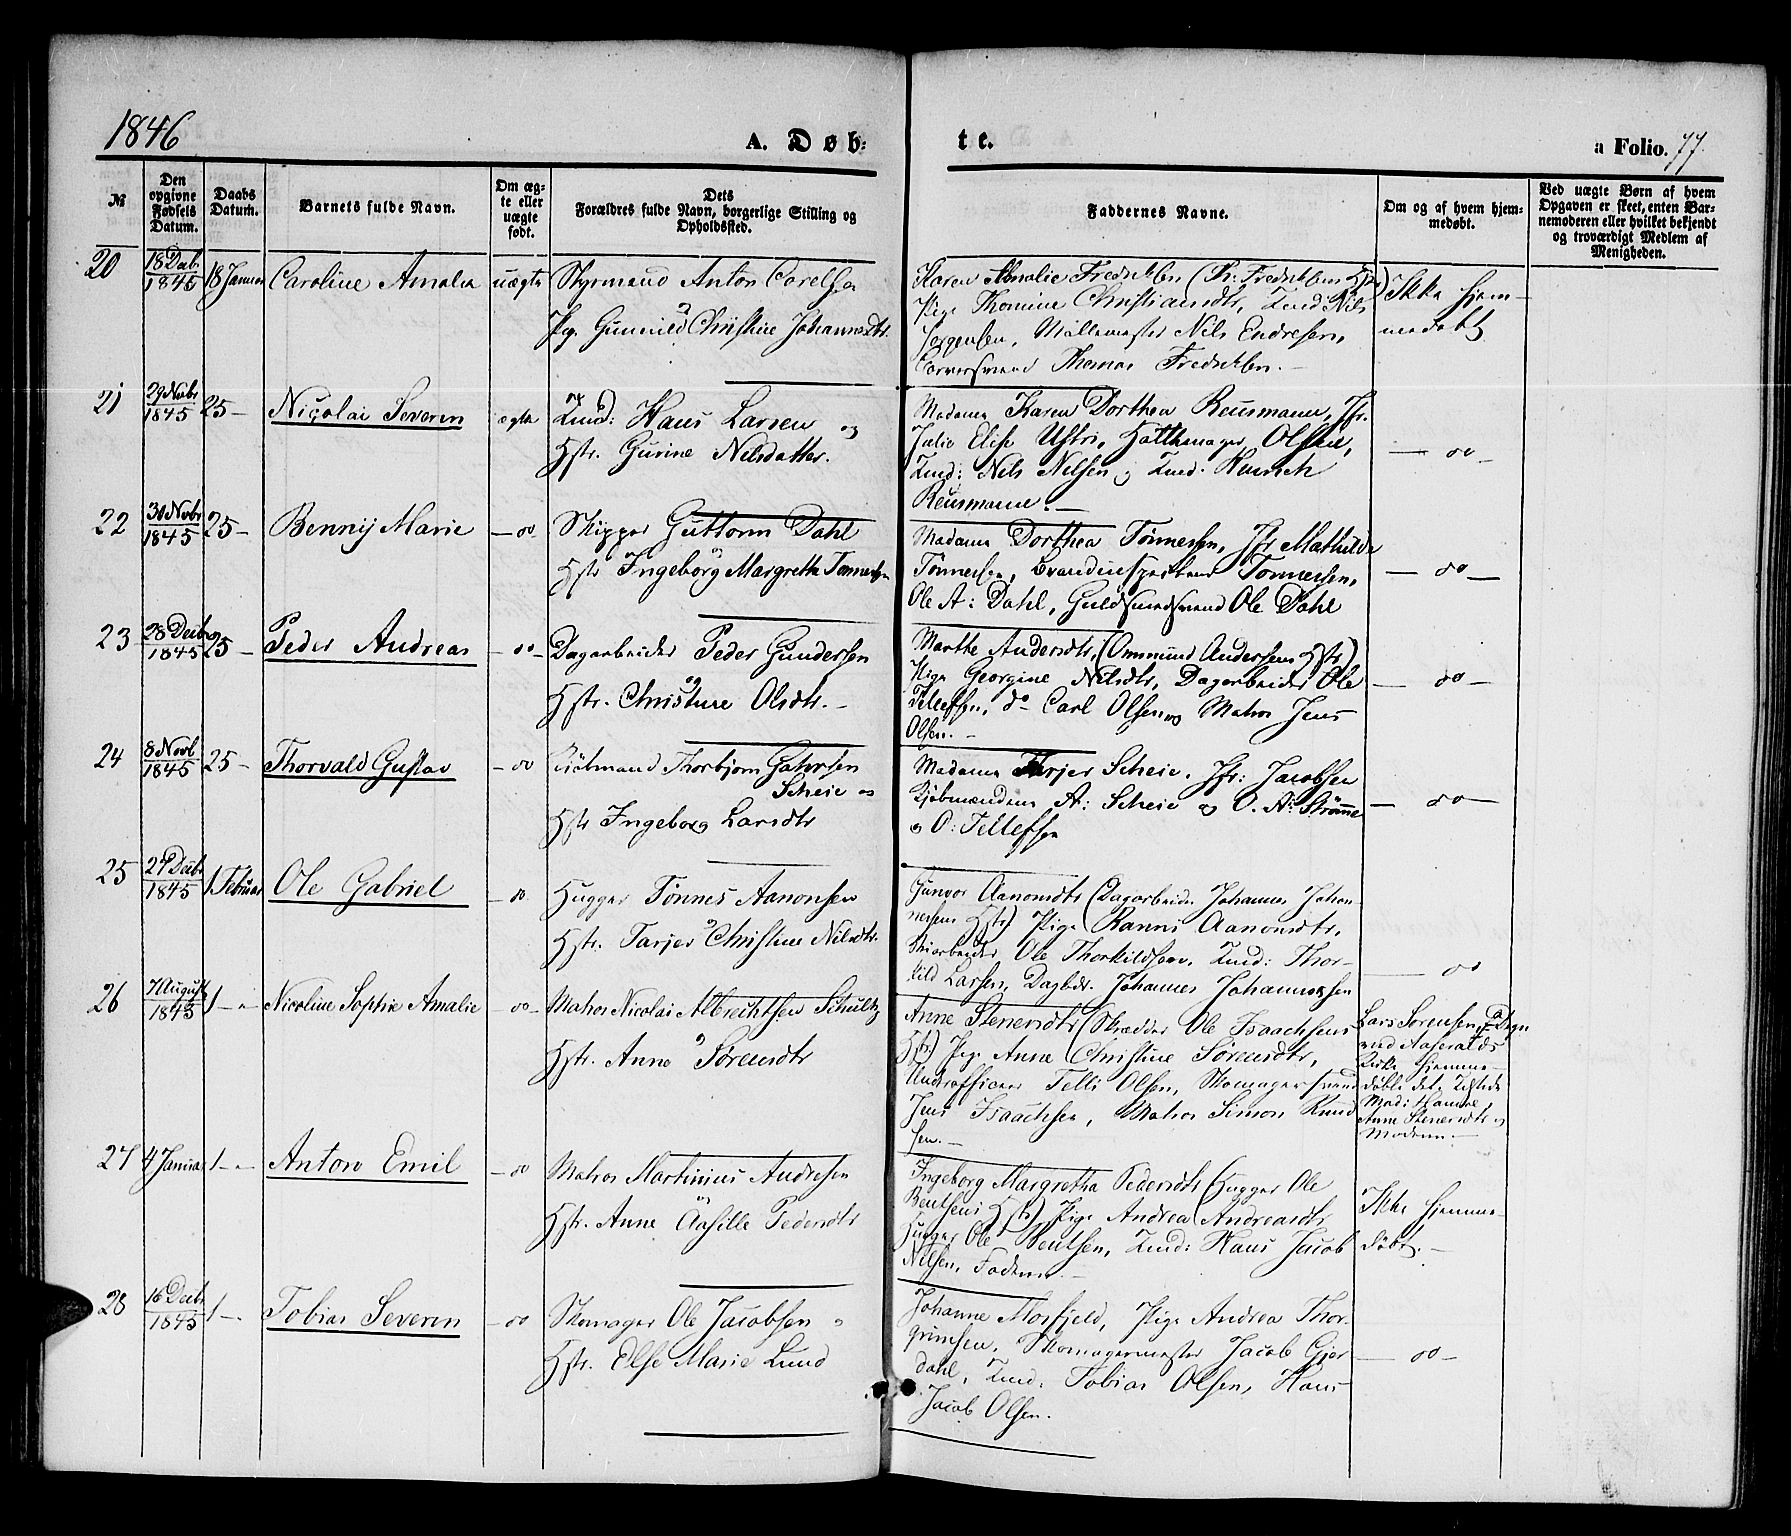 1846
A. Døb:
te.
a Folio. 77.
№
Den opgivne Fødsels Datum.
Daabs Datum.
Barnets fulde Navn.
Om ægte eller uægte født.
Dets Forældres fulde Navn, borgerlige Stilling og Opholdssted.
Faddernes Navne.
Om og af hvem hjemmedøbt.
Ved uægte Børn af hvem Opgaven er skeet, enten Barnemoderen eller hvilket bekjendt og troværdigt Medlem af Menigheden.
20
18 Decb. 1845
18 Januar
Caroline Amalia
uægte
Styrmand Anton Carelsen
Pige Gunnild Christine Johannesdtr.
Karen Amalie Fredriksen (Th: Fredriksens Hstr)
Pige Thomine Christiansdtr, Zimd: Nils
Jørgensen, Møllemester Nils Endresen,
Thomas Fredriksen.
Ikke hjem-
medøbt
21
29 Nvbr 1845
25 -
Nicolai Severin
ægte
Tmd: Hans Larsen og
Hstr. Gurine Nilsdatter.
Madame Karen Dorthea Reusmann, Jfr.
Julie Elise Ustri, Hattemager Olsen,
Tmd: Nels Nelsen og Tmd. Henrich
Reusmann.
- do -
22
30 Novbr 1845
25 -
Bennij Marie
- do
Skipper Guttorm Dahl
Hstr Ingeborg Margretha Tønnessen
Madame Dorthea Tønnessen, Jfr Mathilde
Tønnessen, Tønnessen,
Ole A: Dahl, Guldsmedsvend Ole Dahl
- do -
23
28 Decbr 1845
25 -
Peder Andreas
- do -
Dagarbeider Peder Gundersen
Hstr. Christine Olsdtr. -
Marthe Andersdtr, (Ommund Andersens Hstr)
Pige Georgine Nilsdtr, Dagarbeider Ole
Tellefsen, do Carl Olsen og Matros Jens
Olsen. -
- do -
24
8 Novb 1845
25 -
Thorvald Gustav
- do
Kjøbmand Thorbjørn
Scheie og
Hstr Ingeborg Larsdtr
Madame Tarjer Scheie, Jfr: Jacobsen
Kjøbmændene A: Scheie og O. A: Strømme
og O: Tellefsen
- do -
25
27 Decbr 1845
1 Februar
Ole Gabriel
- do
Hugger Tønnes Aanonsen
Hstr. Tarjer Christine Nilsdtr.
Gunvor Aanonsdtr (Dagarbeider Johannes Johan-
nessens Hstr) Pige Ranni Aanonsdtr,
Ole Thorkildsen, Tmd: Thor-
kild Larsen, Dagbdr. Johannes Johannessen
- do
26
7 August 1845
1 -
Nicoline Sophie Amalie
- do -
Matros Nicolai Albrechtsen Schultz
Hstr. Anne Sørensdtr
Anne Stenersdtr (Skrædder Ole Isaachsens
Hstr) Pige Anne Christine Sørensdtr,
Underofficer Telli Olsen, Skomagersvend
Jens Isaachsen, Matros Simon Knud
sen. -
Lars Sørensen,
ved Aaseralds
Kirke hjemme-
døbte det.
Mad: Hamre,
Anne Stenersdtr og
Moderen. -
27
4 Januar
1 -
Anton Emil
- do
Matros Martinius Andresen
Hstr. Anne Aasille Pedersdtr
Ingeborg Margretha Pedersdtr (Hugger Ole
Bentsens Hstr) Pige Andrea Andreasdtr
Hugger Ole Bentsen, Tmd: Hans Jacob
Nilsen, Faderen. -
Ikke hjemme-
døbt. -
28
16 Decbr 1845
1 -
Tobias Severin
- do
Skomager Ole Jacobsen
Hstr. Else Marie Lund
Johanne Mosfjeld, Pige Andrea Thor-
grimsen, Skomagermester Jacob Gjer
dahl, Tmd: Tobias Olsen, Hans
Jacob Olsen.
- do -